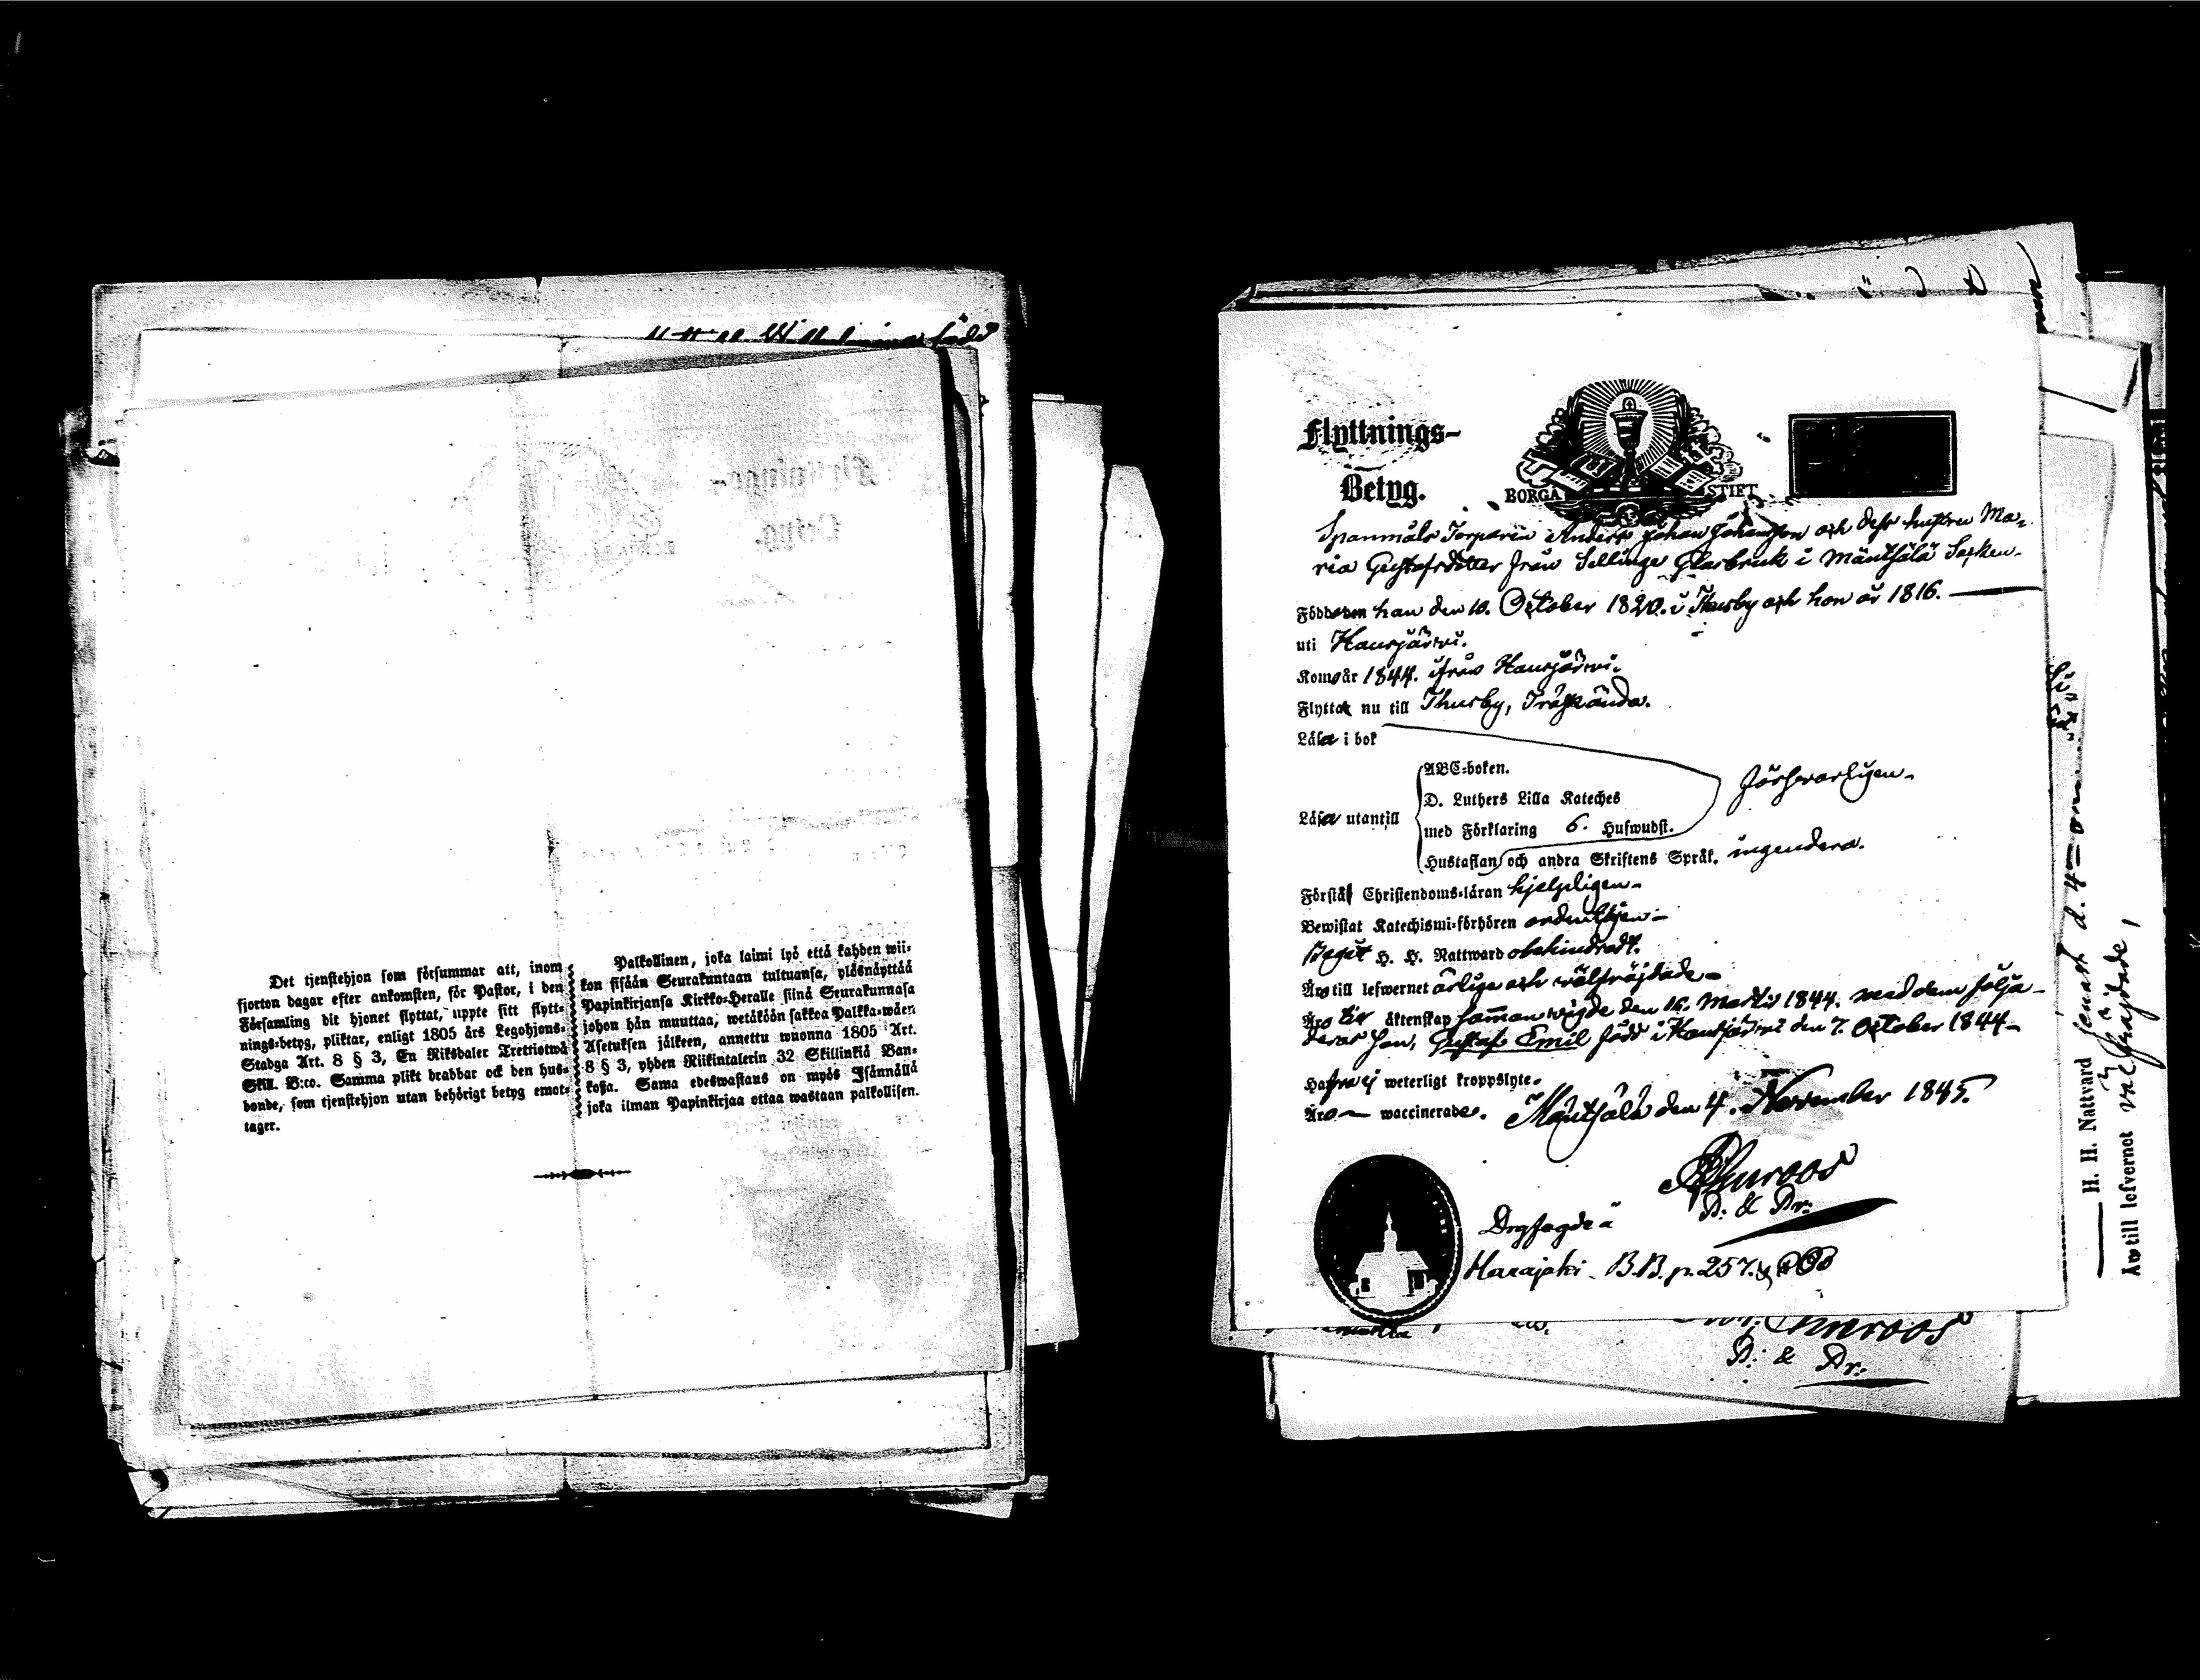 Det tjenstehjon som försummar att, inom
fjorton dagar efter ankomsten, för Pastor, i den
Församling dit hjonet flyttat, uppte sitt flytt-
nings-betyg, pliktar, enligt 1805 års Legohjons-
Stadga Art. 8 § 3, En Riksdaler Tretriotwå
Skill. B:co. Samma plikt drabbar ock den hus-
bonde, som tjenstehjon utan behörigt betyg emot-
tager.
Palkollinen, joka laimi lyö että kahden wii-
kon sisään Seurakuntaan tultuansa, ylösnäyttää
Papinkirjansa Kirkko-Heralle siinä Seurakunnasa
johon hän muuttaa, wetäköön sakkoa Palkka-wäen
Asetuksen jälkeen, annettu wuonna 1805 Art.
8 § 3, yhden Riikintalerin 32 Skillinkiä Ban-
kosa. Sama edeswastaus on myös Isännällä
joka ilman Papinkirjaa ottaa wastaan palkollisen.
Flyttnings-
Betyg.
BORGÅ STIFT
Spanmåls Torparen Anders Johan Johansson och dess hustru Ma-
ria Gustafsdotter från Sellinge Glasbruk i Mäntsälä Socken.
Födde han den 10. October 1820. i Thusby och hon år 1816.
uti Hausjärwi.
Komo år 1844. ifrån Hausjärwi.
Flytta nu till Thusby, Träskända.
Läsa i bok
ABC-boken.
D. Luthers Lilla Kateches
Läsa utantill
med Förklaring 6. Hufwudst.
Försvarligen.
Hustaflan och andra Skriftens Språk. ingendera.
Förstå Christendoms-läran hjelpligen.
Bewistat Katechismi-förhören ordentligen.
Begått H. H. Nattward obehindradt.
Äro till lefwernet ärliga och wälfräjdade.
Äro till äktenskap sammanwigde den 16. Martii 1844. med dem följa
deras son, Gustaf Emil född i Hausjärwi den 7. October 1844.
Hafwa ej weterligt kroppslyte.
Äro waccinerade. Mäntsälä den 4. November 1845.
P. & Pr:
Harajoki. B.B. p. 257.
P: & Pr:
H. H. Nattvard senast d. 4
Äro till lefvernet välfräjdade,